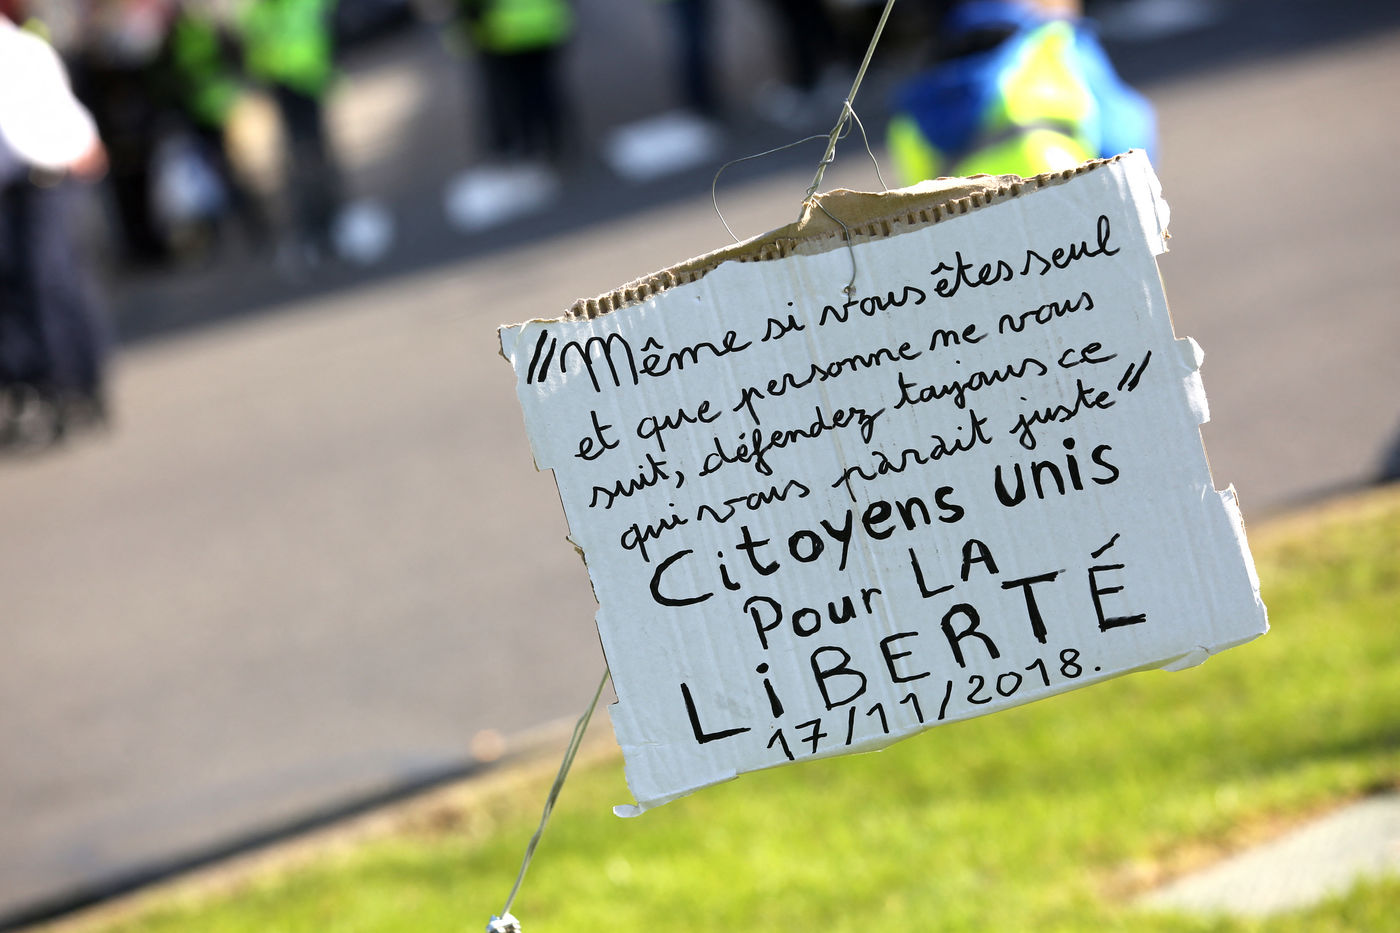 "Même si vous êtes seul
et que personne ne vous
suit, défendez toujours ce
qui vous parait juste"
Citoyens unis
Pour LA
LiBERTÉ
17/11/2018.